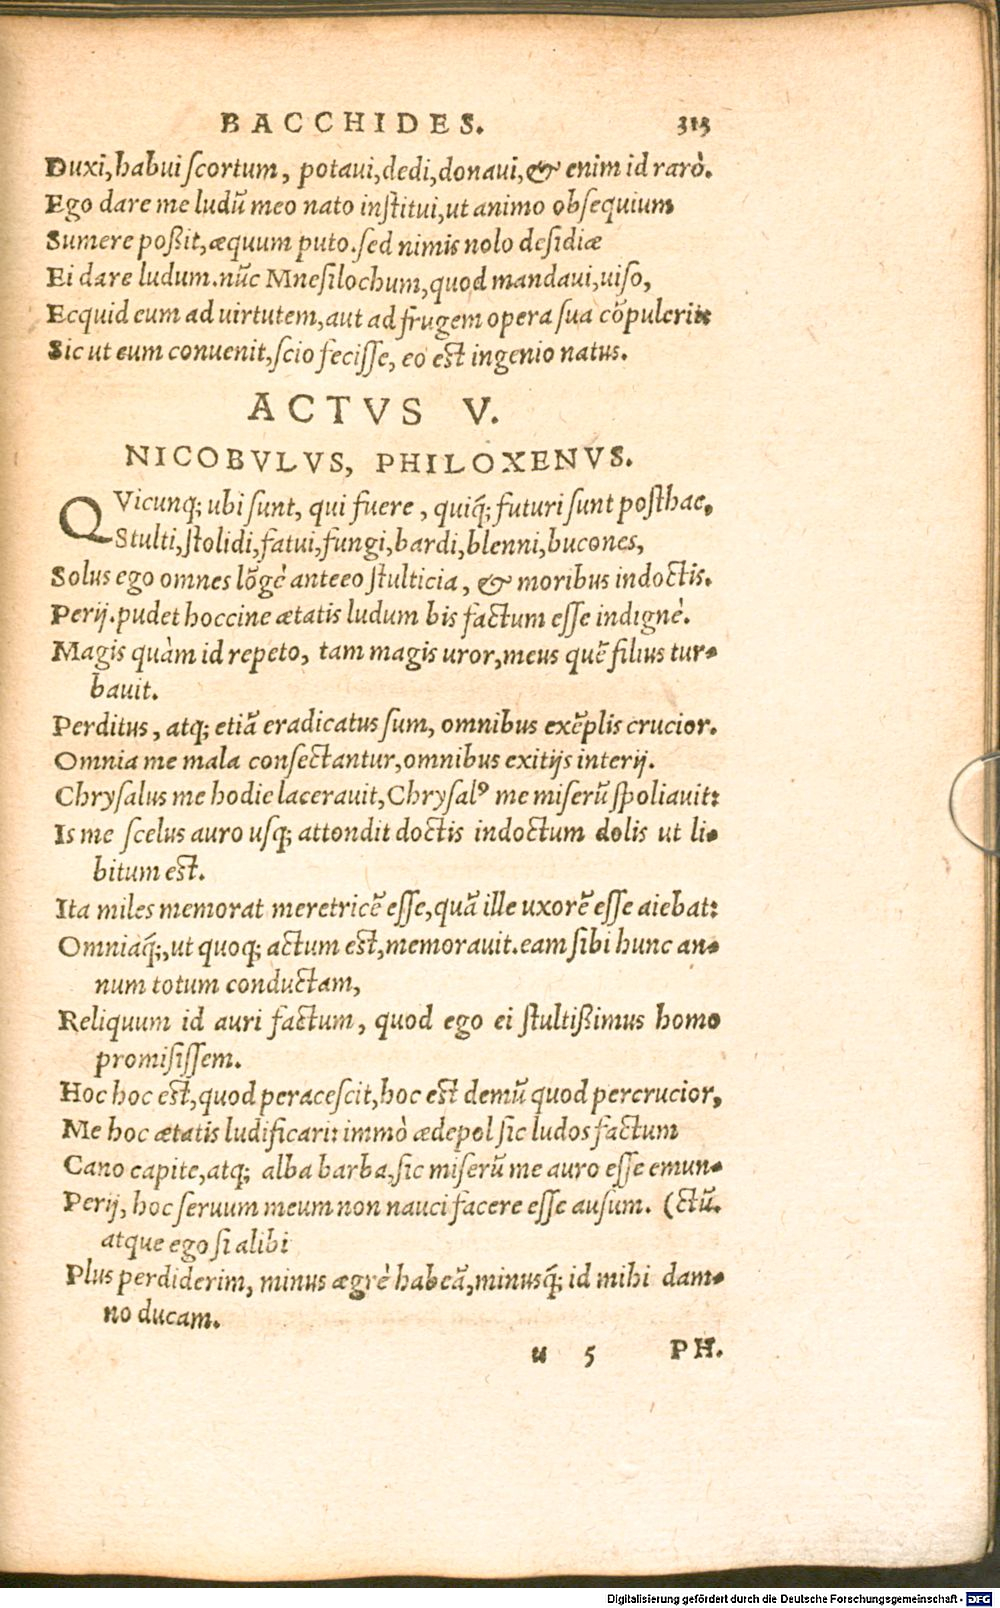 BACCHIDES. 313
Duxi, habui scortum, potaui, dedi, donaui, & enim id rarò.
Ego dare me ludũ meo nato institui, ut animo obsequium
Sumere poßit, æquum puto. sed nimis nolo desidiæ
Ei dare ludum. nũc Mnesilochum, quod mandaui, uiso,
Ecquid eum ad uirtutem, aut ad frugem opera sua cõpulerit:
Sic ut eum conuenit, scio fecisse, eo est ingenio natus.
ACTVS V.
NICOBVLVS, PHILOXENVS.
QVicunq; ubi sunt, qui fuere, quiq̃; futuri sunt posthac,
Stulti, stolidi, fatui, fungi, bardi, blenni, bucones,
Solus ego omnes lõgè anteeo stulticia, & moribus indoctis.
Perij. pudet hoccine ætatis ludum bis factum esse indignè.
Magis quàm id repeto, tam magis uror, meus quẽ filius tur-
bauit.
Perditus, atq; etiã eradicatus sum, omnibus exẽplis crucior.
Omnia me mala consectantur, omnibus exitijs interij.
Chrysalus me hodie lacerauit, Chrysalꝰ me miserũ spoliauit:
Is me scelus auro usq; attondit doctis indoctum dolis ut li-
bitum est.
Ita miles memorat meretricẽ esse, quã ille uxorẽ esse aiebat:
Omniaq̃;, ut quoq; actum est, memorauit. eam sibi hunc an-
num totum conductam,
Reliquum id auri factum, quod ego ei stultißimus homo
promisissem.
Hoc hoc est, quod peracescit, hoc est demũ quod percrucior,
Me hoc ætatis ludificari: immò ædepol sic ludos factum
Cano capite, atq; alba barba, sic miserũ me auro esse emun-
Perij, hoc seruum meum non nauci facere esse ausum. (ctũ.
atque ego si alibi
Plus perdiderim, minus ægrè habeã, minusq̃; id mihi dam-
no ducam.
u 5 PH.
Digitalisierung gefördert durch die Deutsche Forschungsgemeinschaft - DFG